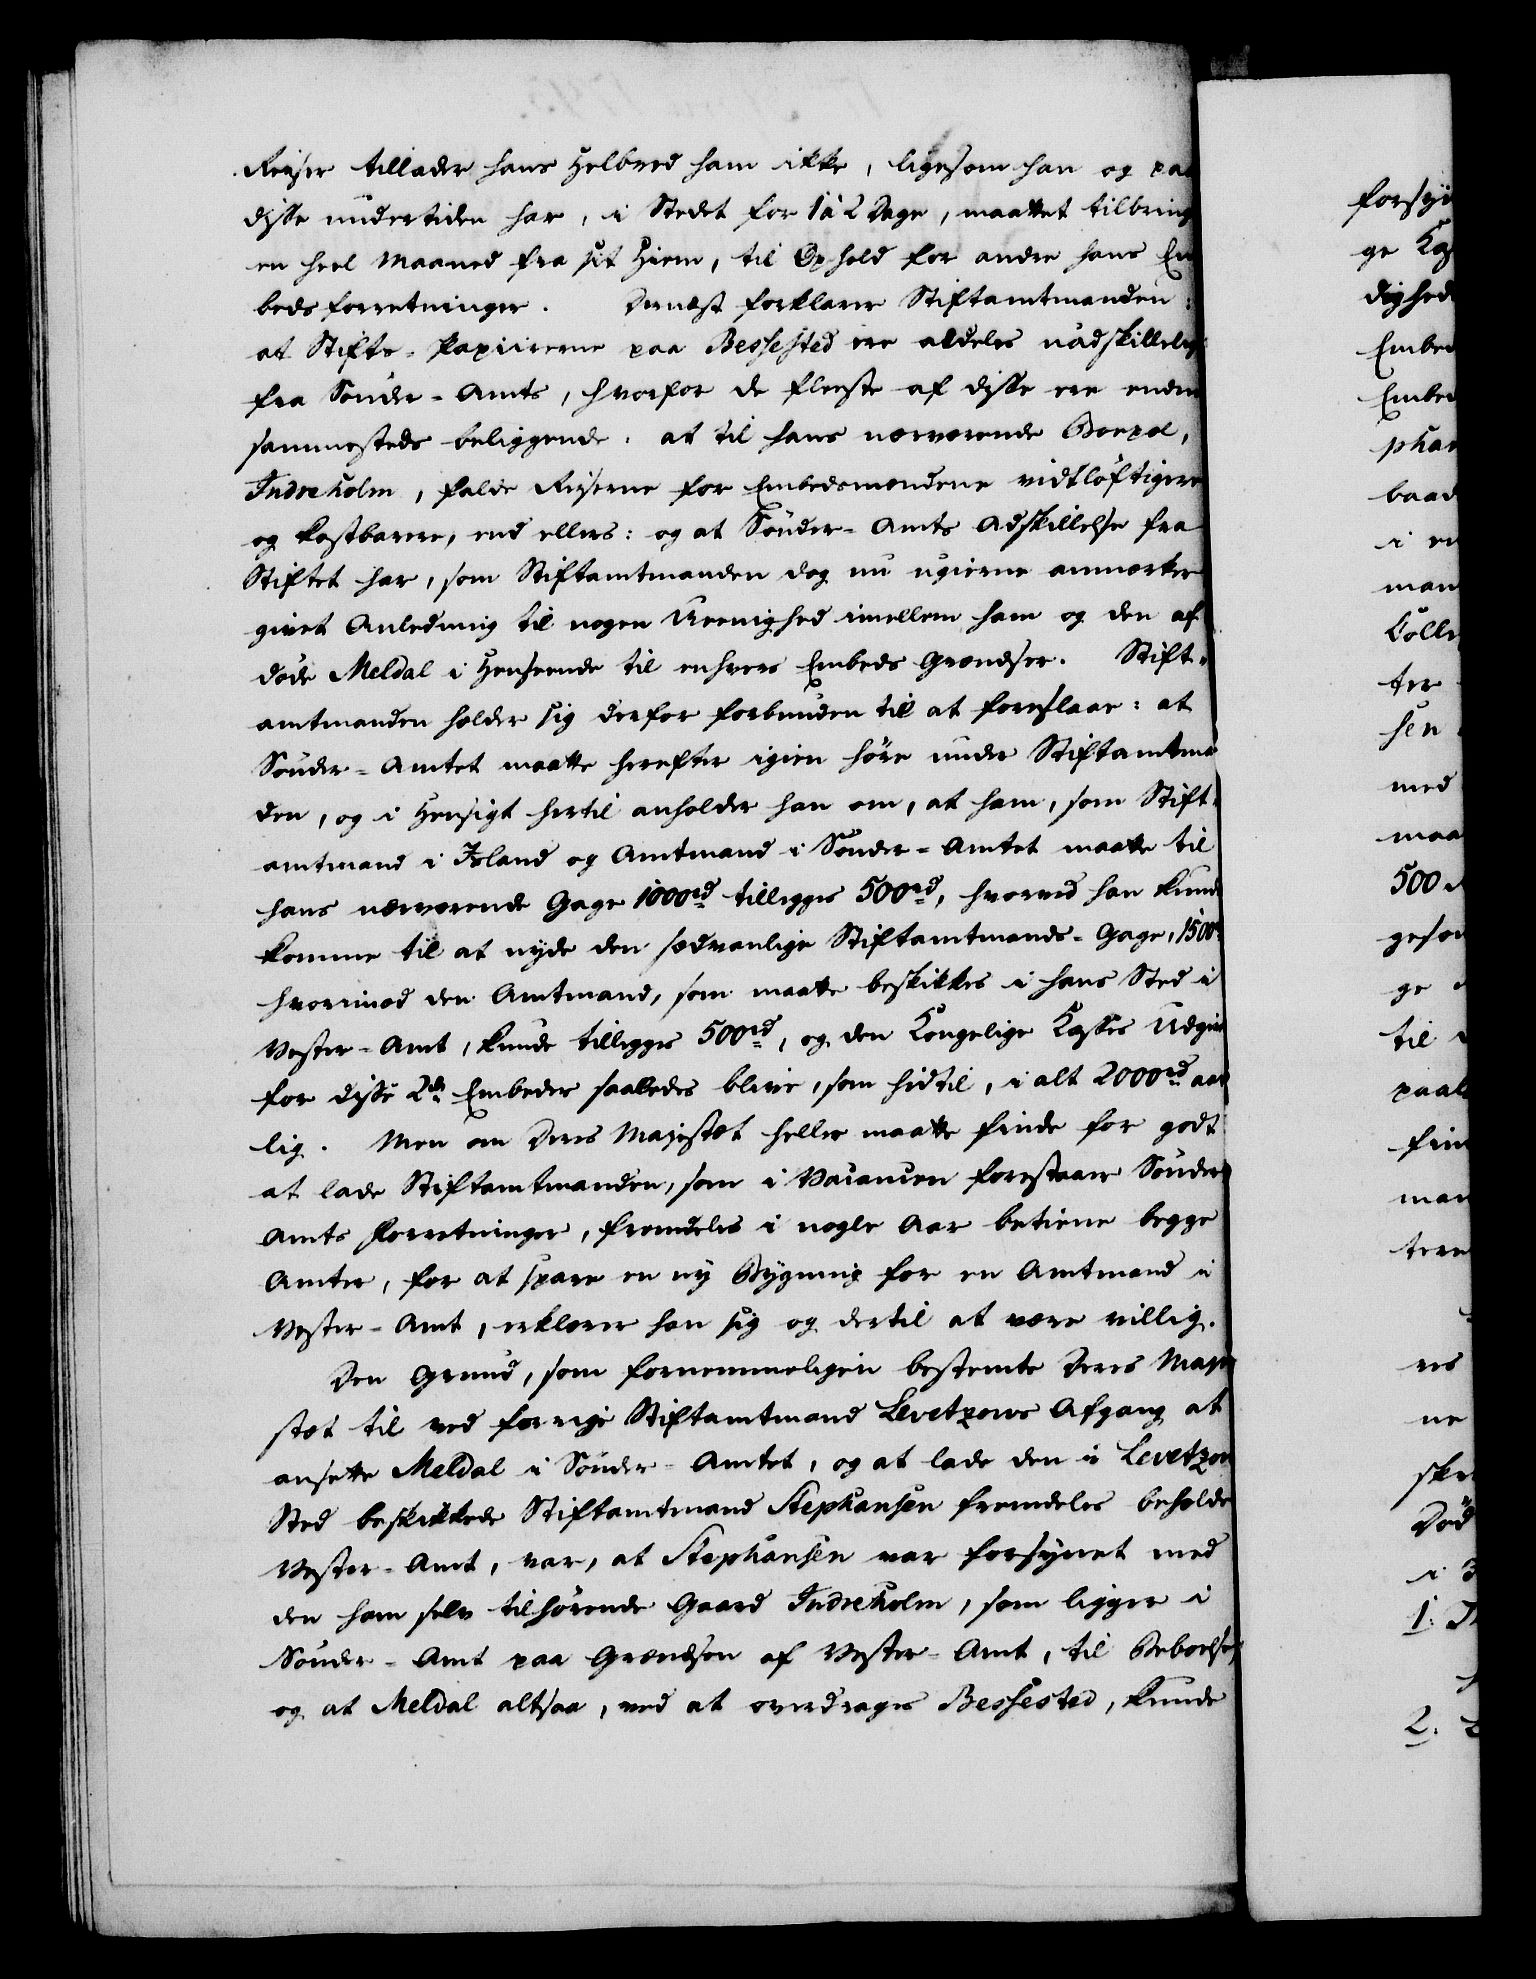 Reiser tillader hans Helbred ham ikke, ligesom han og paa
disse undertiden har, i Stedet for 1 à 2 Dage, maattet tilbring
en heel Maaned fra sit Hiem, til Ophold for andre hans Em
bedsforretninger. Dernæst forklarer Stiftamtmanden:
at Stifts-Papiirerne paa Bessested ere aldeles uadskillelig
fra Sønder-Amts, hvorfor de fleeste af disse ere endnu
sammesteds beliggende: at til hans nærværende Boepæl,
Indreholm, falde Reiserne for Embedsmændene vidtløftigere
og kostbarere, end ellers: og at Sønder-Amts Adskillelse fra
Stiftet har, som Stiftamtmanden dog nu ugierne anmærker
givet Anledning til nogen Ueenighed imellem ham og den af
døde Meldal i Henseende til enhvers Embeds Grændser. Stift-
amtmanden holder sig derfor forbunden til at foreslaae: at
Sønder-Amtet maatte herefter igien høre under Stiftamtma
den, og i Hensigt hertil anholder han om, at ham, som Stift-
amtmand i Island og Amtmand i Sønder-Amtet maatte til
hans nærværende Gage 1000rd tillegges 500rd, hvorved han kunde
komme til at nyde den sædvanlige Stiftamtmands-Gage, 1500
hvorimod den Amtmand, som maatte beskikkes i hans Sted i
Vester-Amt, kunde tillegges 500rd, og den Kongelige Kasses Udgivt
for disse 2de Embeder saaledes blive, som hidtil, i alt 2000rd aar
lig. Men om Deres Majestæt heller maatte finde for godt
at lade Stiftamtmanden, som i Vacancen forestaaer Sønder
Amts Forretninger, fremdeles i nogle Aar betiene begge
Amter, for at spare en ny Bygning for en Amtmand i
Vester-Amt, erklærer han sig og dertil at være villig.
Den Grund, som fornemmeligen bestemte Deres Maje
stæt til ved forrige Stiftamtmand Levetzows Afgang at
ansætte Meldal i Sønder-Amtet, og at lade den i Levetzow
Sted beskikkede Stiftamtmand Stephansen fremdeles beholde
Vester-Amt, var, at Stephansen var forsynet med
den ham selv tilhørende Gaard Indreholm, som ligger i
Sønder-Amt paa Grændsen af Vester-Amt, til Beboelse,
og at Meldal altsaa, ved at overdrages Bessested, kunde
forsyn
ge Kas
dighed
Embed
Embed
phan
baad
i en
man
Colle
ter
sen
med
maa
500
geson
ge
til
paal
fin
man
tere
res
ne
ske
Død
i 3
1. I
2.